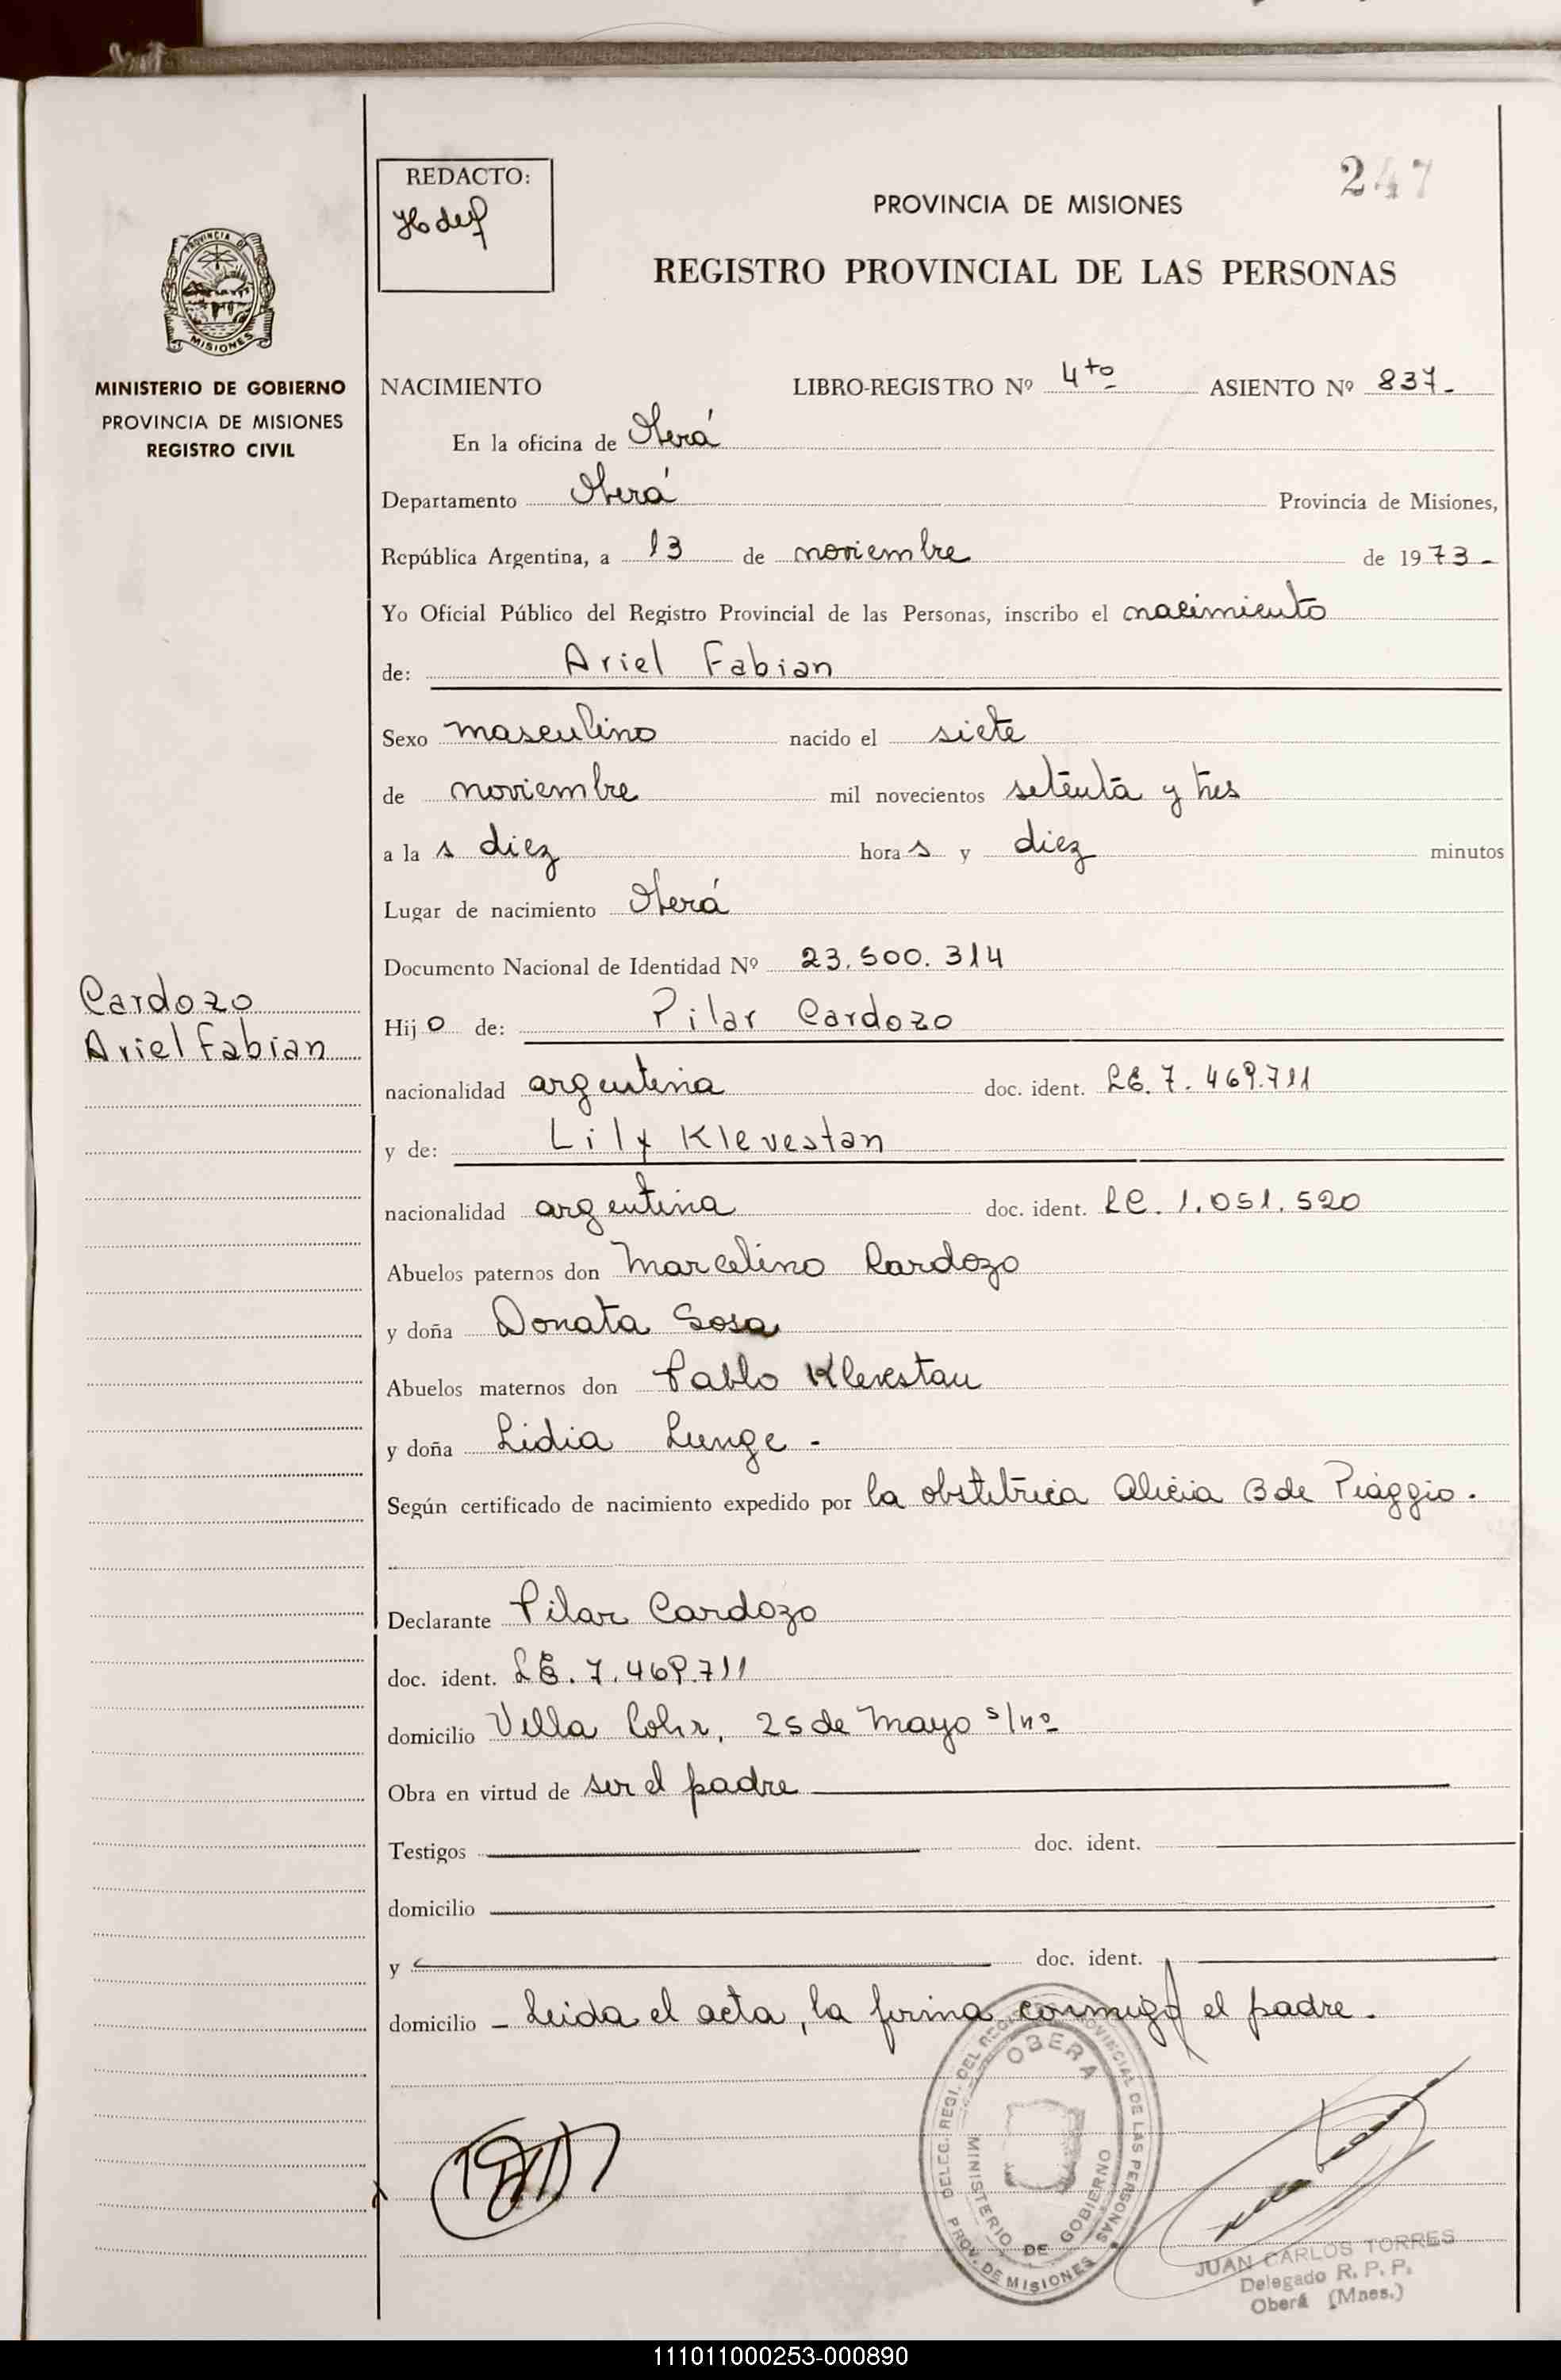 247
REDACTO:
PROVINCIA DE MISIONES
REGISTRO PROVINCIAL DE LAS PERSONAS
PROVINCIA DE
MISIONES
MINISTERIO DE GOBIERNO
PROVINCIA DE MISIONES
REGISTRO CIVIL
NACIMIENTO LIBRO-REGISTRO Nº 4to ASIENTO Nº 837-
En la oficina de Oberá
Departamento Oberá Provincia de Misiones,
República Argentina, a 13 de noviembre de 1973-
Yo Oficial Público del Registro Provincial de las Personas, inscribo el nacimiento
de: Ariel Fabian
Sexo masculino nacido el siete
de noviembre mil novecientos setenta y tres
a la s diez hora s y diez minutos
Lugar de nacimiento Oberá
Documento Nacional de Identidad Nº 23.500.314
Cardozo
Ariel Fabian
Hijo de: Pilar Cardozo
nacionalidad argentina doc. ident. LE. 7.469.711
y de: Lily Klevestan
nacionalidad argentina doc. ident. LC. 1.051.520
Abuelos paternos don Marcelino Cardozo
y doña Donata Sosa
Abuelos maternos don Pablo Klevestau
y doña Lidia Lunge -
Según certificado de nacimiento expedido por la obstetrica Alicia B de Piaggio.
Declarante Pilar Cardozo
doc. ident. LE. 7.469.711
domicilio Villa 25 de Mayo s/nº
Obra en virtud de ser el padre
Testigos doc. ident.
domicilio
y doc. ident.
domicilio - Leida el acta, la firma conmigo el padre.
DELEG. REGI. DEL REGISTRO PROVINCIAL DE LAS PERSONAS
OBERA
MINISTERIO DE GOBIERNO
PROV. DE MISIONES
JUAN CARLOS TORRES
Delegado R. P. P.
Oberá (Mnes.)
111011000253-000890